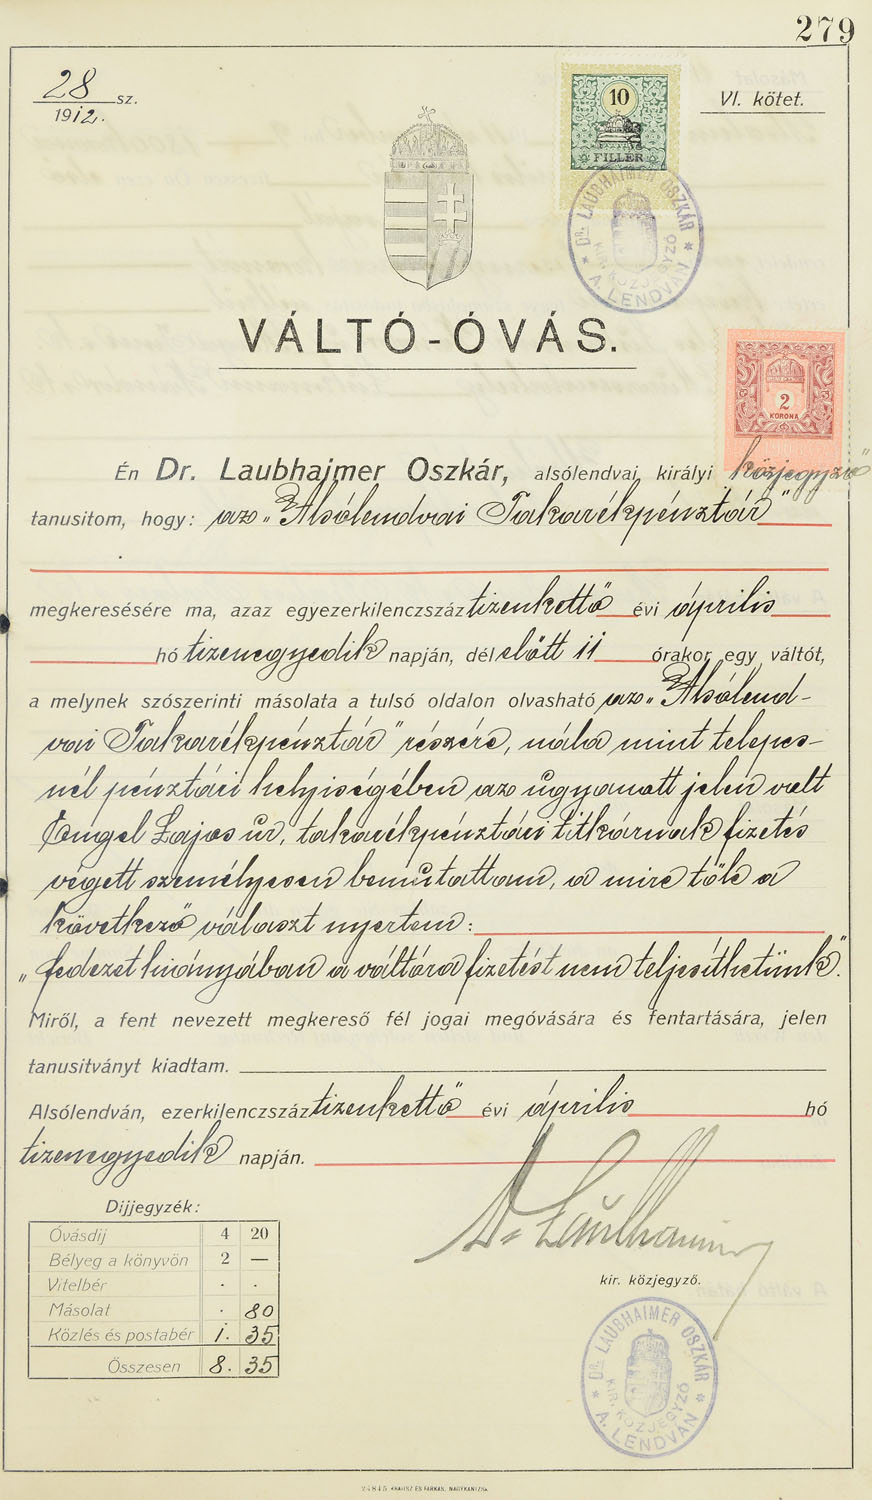 279
28 sz.
1912.
VI. kötet.
10
FILLER
DR. LAUBHAIMER OSZKÁR
KIR. KÖZJEGYZŐ
A. LENDVÁN
VÁLTÓ-ÓVÁS.
2
KORONA
Én Dr. Laubhajmer Oszkár, alsólendvai királyi közjegyző
tanusitom, hogy: az „Alsólendvai Takarékpénztár”
megkeresésére ma, azaz egyezerkilenczszáz tizenkettő évi április
hó tizenegyedik napján, dél előtt 11 órakor egy váltót,
a melynek szószerinti másolata a tulsó oldalon olvasható az „Alsólend-
vai Takarékpénztár” részére, nála mint telepes-
nél pénztári helyiségében az ugyanott jelen volt
Engel Lajos úr, takarékpénztári titkárnak fizetés
végett személyesen bemutattam, a mire tőle a
következő választ nyertem:
„fedezet hiányában a váltóra fizetést nem teljesíthetünk”.
Miről, a fent nevezett megkereső fél jogai megóvására és fentartására, jelen
tanusitványt kiadtam.
Alsólendván, ezerkilenczszáz tizenkettő évi április hó
tizenegyedik napján.
Dr Laubhaimer
kir. közjegyző.
Dijjegyzék:
Óvásdij 4 20
Bélyeg a könyvön 2 —
Vitelbér . .
Másolat . 80
Közlés és postabér 1. 35
Összesen 8. 35
DR. LAUBHAIMER OSZKÁR
KIR. KÖZJEGYZŐ
A. LENDVÁN
24845 KRAUSZ ÉS FARKAS, NAGYKANIZSA